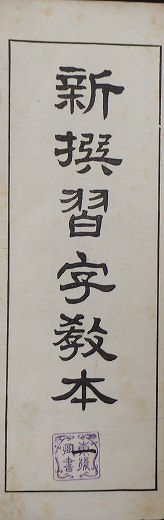 新撰習字教本
一